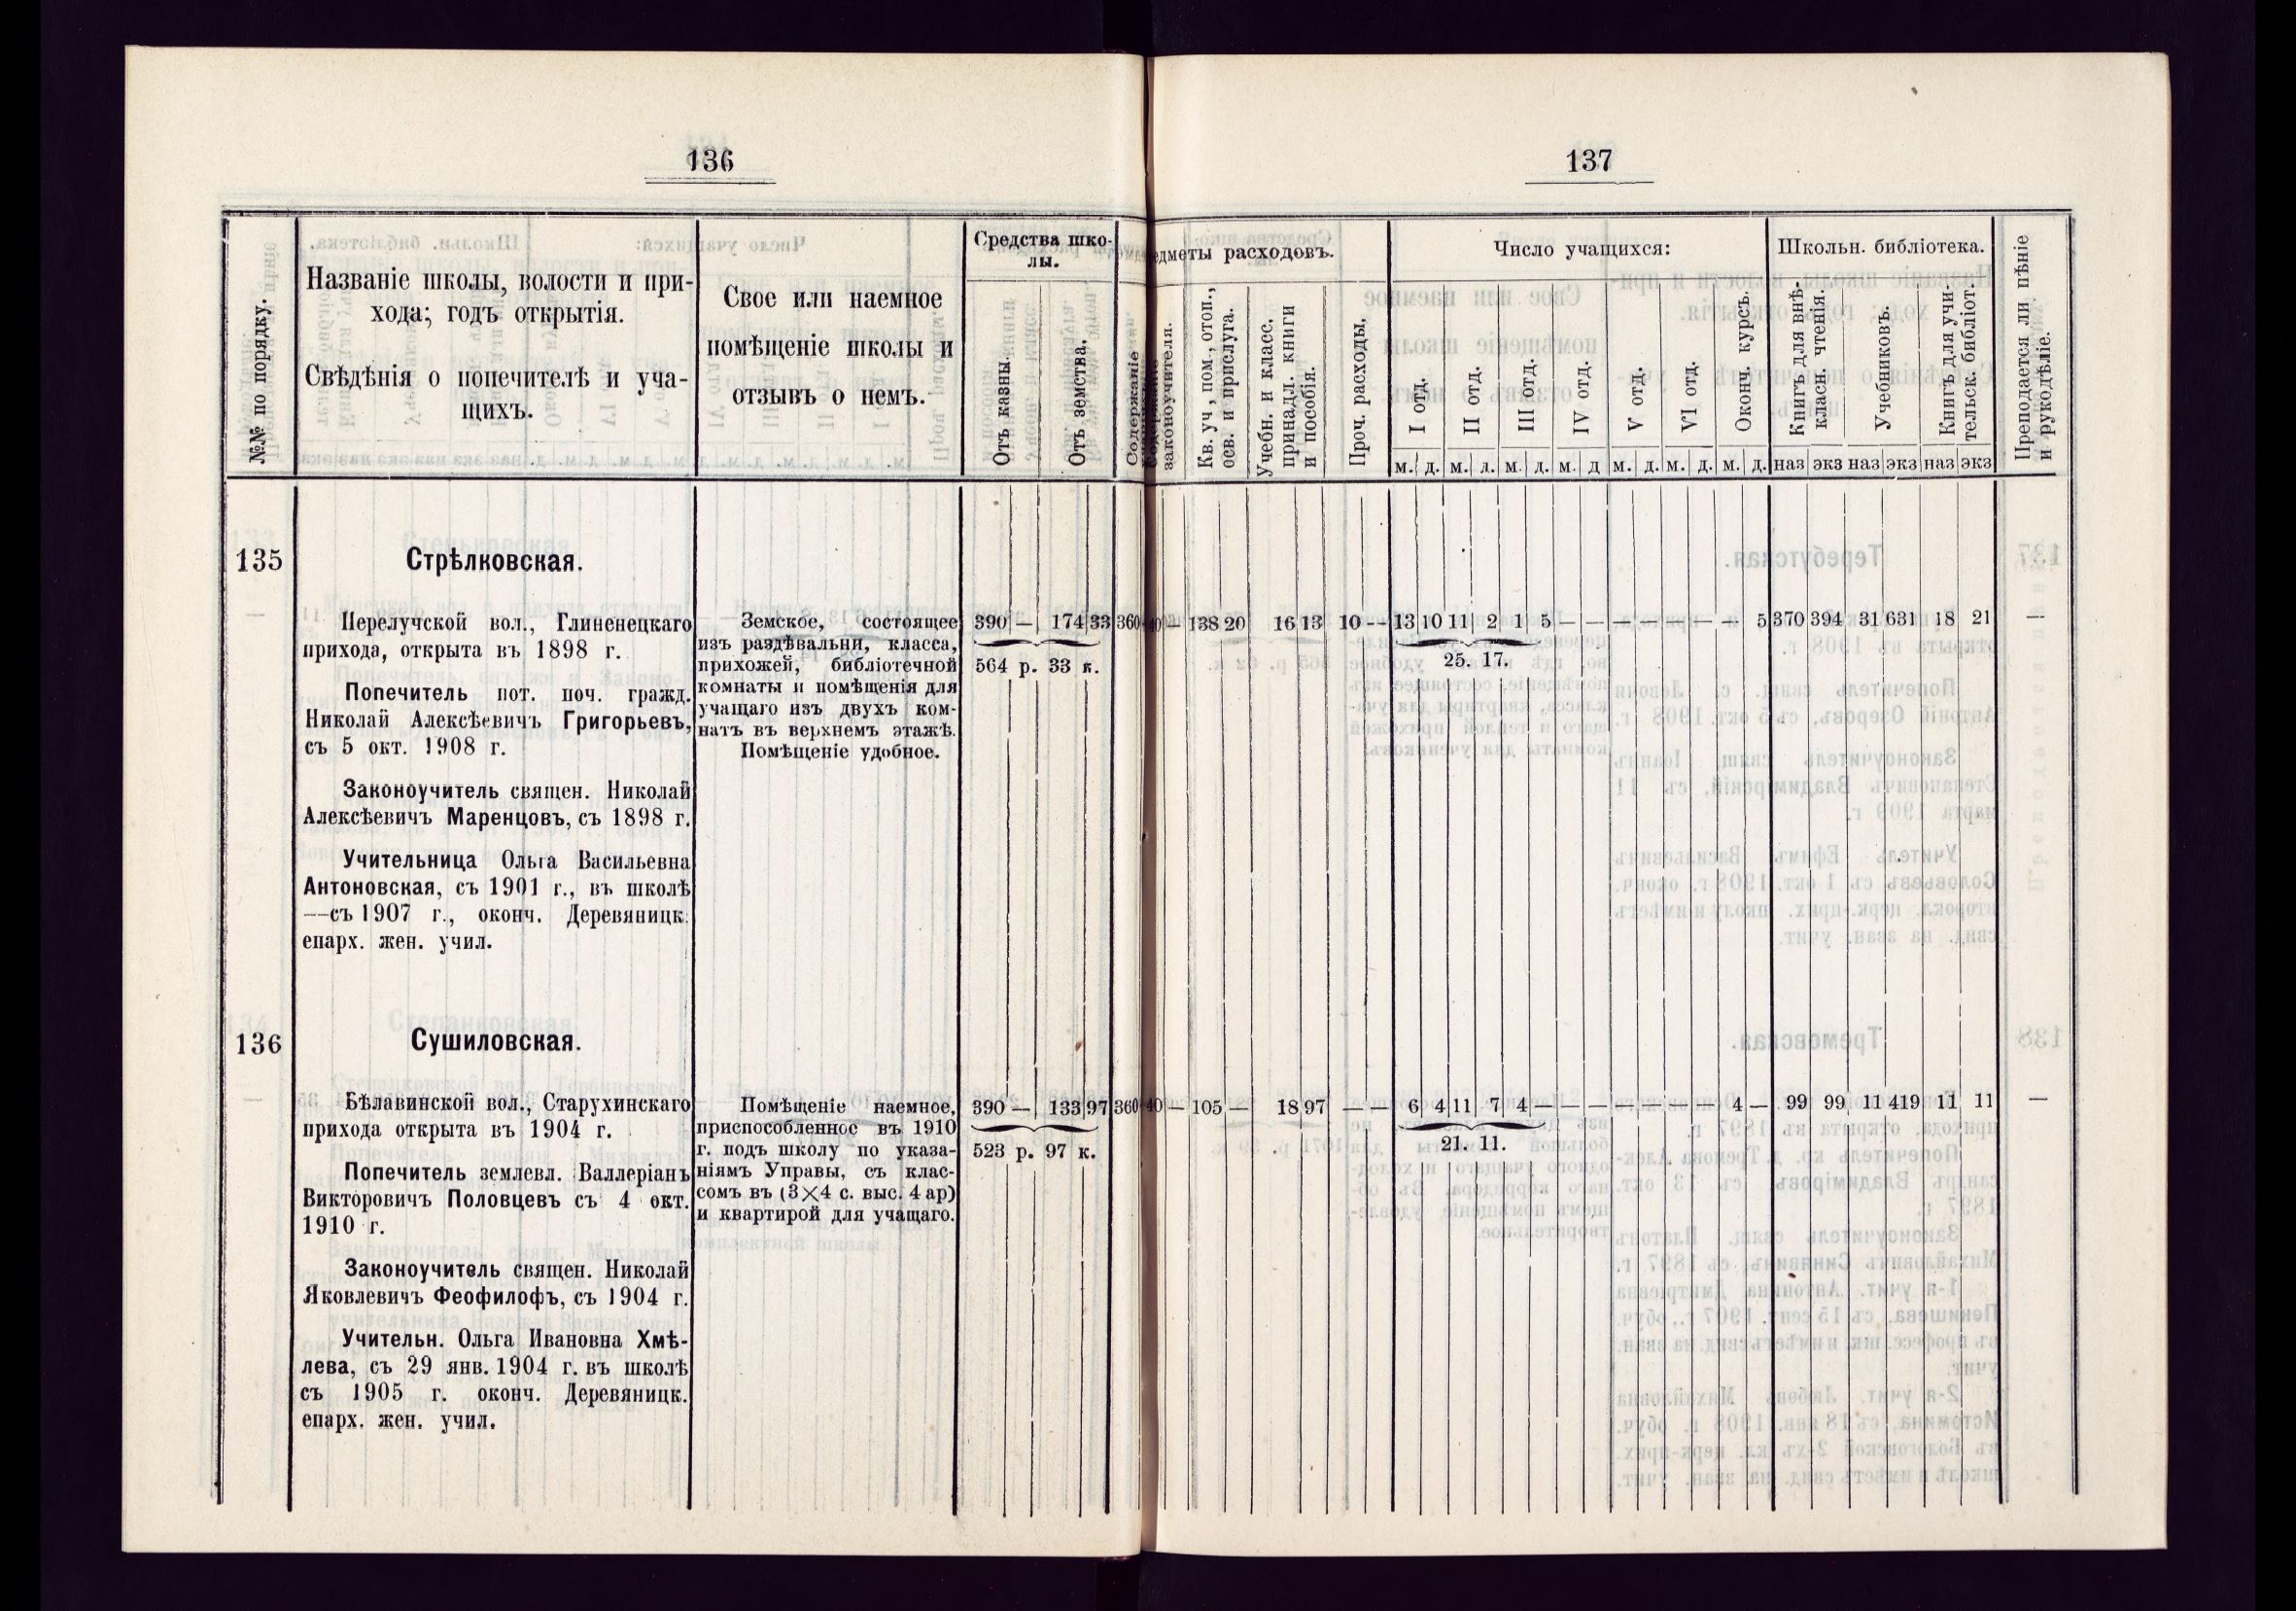 136
№№ по порядку.
Названіе школы, волости и при-
хода; годъ открытія.
Свѣдѣнія о попечителѣ и уча-
щихъ.
Свое или наемное
помѣщеніе школы и
отзывъ о немъ.
Средства шко-
лы.
Отъ казны.
Отъ земства.
Содержаніе
135
Стрѣлковская.
Перелучской вол., Глиненецкаго
прихода, открыта въ 1898 г.
Попечитель пот. поч. гражд.
Николай Алексѣевичъ Григорьевъ,
съ 5 окт. 1908 г.
Законоучитель священ. Николай
Алексѣевичъ Маренцовъ, съ 1898 г.
Учительница Ольга Васильевна
Антоновская, съ 1901 г., въ школѣ
—съ 1907 г., оконч. Деревяницк.
епарх. жен. учил.
Земское, состоящее
изъ раздѣвальни, класса,
прихожей, библіотечной
комнаты и помѣщенія для
учащаго изъ двухъ ком-
натъ въ верхнемъ этажѣ.
Помѣщеніе удобное.
390 — 174 33 360
564 р. 33 к.
136
Сушиловская.
Бѣлавинской вол., Старухинскаго
прихода открыта въ 1904 г.
Попечитель землевл. Валлеріанъ
Викторовичъ Половцевъ съ 4 окт.
1910 г.
Законоучитель священ. Николай
Яковлевичъ Феофилофъ, съ 1904 г.
Учительн. Ольга Ивановна Хмѣ-
лева, съ 29 янв. 1904 г. въ школѣ
съ 1905 г. оконч. Деревяницк.
епарх. жен. учил.
Помѣщеніе наемное,
приспособленное въ 1910
г. подъ школу по указа-
ніямъ Управы, съ клас-
сомъ въ (3×4 с. выс. 4 ар)
и квартирой для учащаго.
390 — 133 97 360
523 р. 97 к.
137
едметы расходовъ.
законоучителя.
Кв. уч., пом., отоп.,
осв. и прислуга.
Учебн. и класс.
принадл. книги
и пособія.
Проч. расходы,
Число учащихся:
I отд.
II отд.
III отд.
IV отд.
V отд.
VI отд.
Оконч. курсъ.
м. д. м. д. м. д. м. д м. д. м. д. м. д.
Школьн. библіотека.
Книгъ для внѣ-
класн. чтенія.
Учебниковъ.
Книгъ для учи-
тельск. библіот.
наз экз наз экз наз экз
Преподается ли пѣніе
и рукодѣліе.
40 — 138 20 16 13 10 — 13 10 11 2 1 5 — — — — — — — 5 370 394 31 631 18 21 —
25. 17.
40 — 105 — 18 97 — — 6 4 11 7 4 — — — — — — — 4 — 99 99 11 419 11 11 —
21. 11.